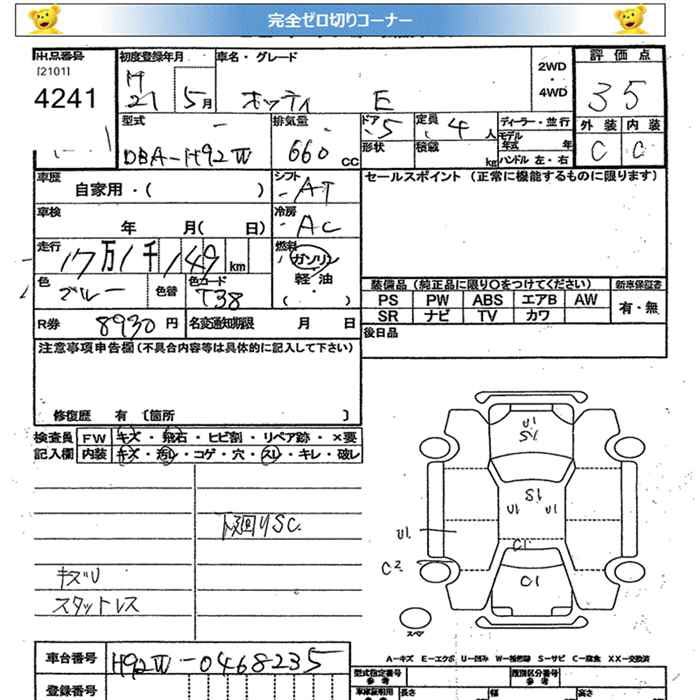 完全ゼロ切りコーナー
出品番号
[2101]
4241
初度登録年月
H
21 5月
車名・グレード
オッティ E
2WD
・
4WD
評価点
3 5
外装 内装
C C
型式
DBA-H92W
排気量
660 cc
ドア 5
形状
定員 4 人
積載 kg
ディーラー・並行
モデル
年式 年
ハンドル 左・右
車歴
自家用・( )
シフト
AT
セールスポイント (正常に機能するものに限ります)
車検
年 月( 日)
冷房
AC
走行
17万1千149km
燃料
ガソリン
軽油
( )
色
ブルー
色替
色コード
T38
装備品 (純正品に限り○をつけてください)
新車保証書
PS PW ABS エアB AW
有・無
SR ナビ TV カワ
R券 8930 円
名変通知期限 月 日
後日品
注意事項申告欄 (不具合内容等は具体的に記入して下さい)
修復歴 有 〔箇所 〕
検査員
記入欄
FW キズ・飛石・ヒビ割・リペア跡・×要
内装 キズ・汚レ・コゲ・穴・スレ・キレ・破レ
下廻りSC.
キズU
スタットレス
U1
S1
S1
U1 U1
U1
C1
C2
C1
スペア
A-キズ E-エクボ U-凹み W-補修跡 S-サビ C-腐食 XX-交換済
車台番号
H92W-0468235
登録番号
型式指定番号
参考
類別区分番号
参考
車庫証明用
参考
長さ
幅
高さ